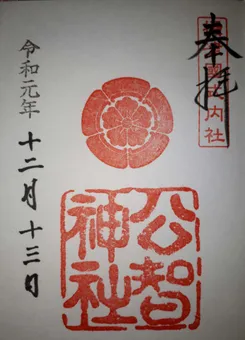 奉拝
內社
公智
神社
令和元年
十二月十三日